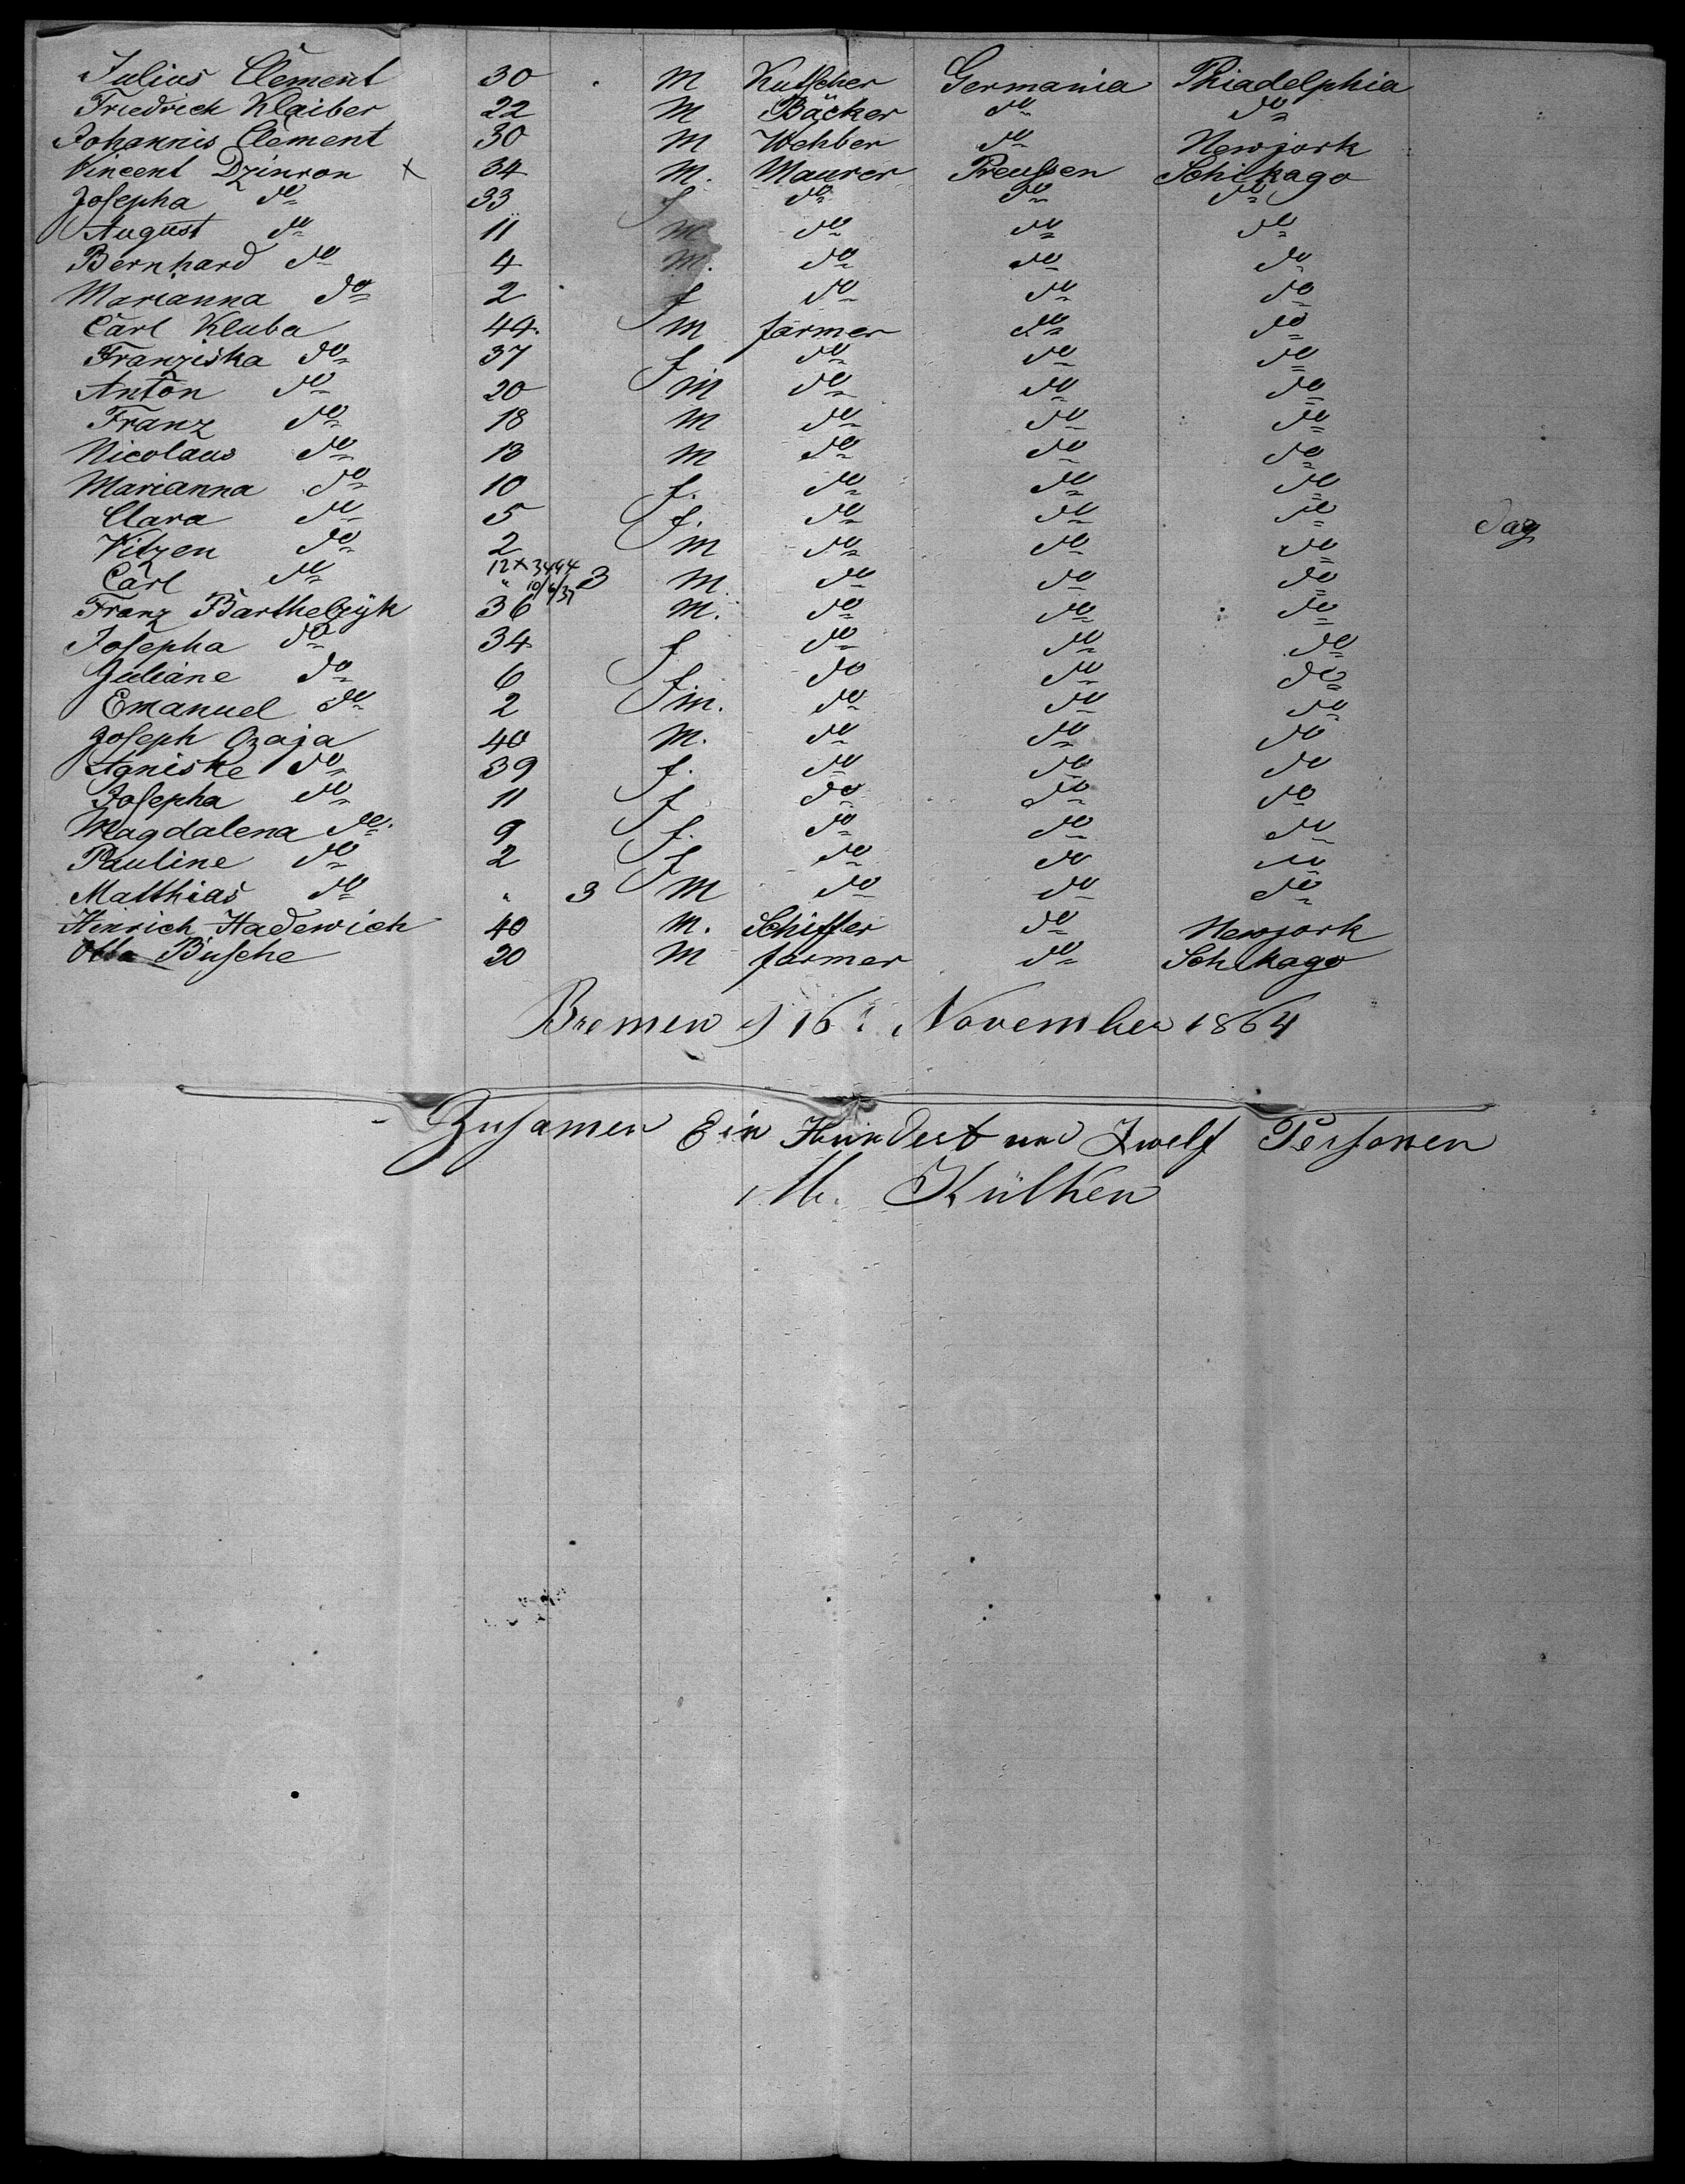 Julius Clement 30 M Kutscher Germania Phiadelphia
Friedrich Klaiber 22 M Bäcker do do
Johannis Clement 30 M Wehber do Newjork
Vincent Dzinron x 34 M. Maurer Preussen Schikago
Josepha do 33 f do do do
August do 11 m do do do
Bernhard do 4 m. do do do
Marianna do 2 f do do do
Carl Kluba 44. m farmer do do
Franziska do 37 f do do do
Anton do 20 m do do do
Franz do 18 m do do do
Nicolaus do 13 m do do do
Marianna do 10 f. do do do
Clara do 5 f. do do do
Vitzen do 2 m do do do
12x3494
Carl do " 3 m do do do
10/6/37
Franz Barthelzyk 36 m. do do do
Josepha do 34 f do do do
Juliane do 6 f do do do
Emanuel do 2 m. do do do
Joseph Czaja 40 m. do do do
Agniske do 39 f. do do do
Josepha do 11 f do do do
Magdalena do 9 f. do do do
Pauline do 2 f do do do
Matthias do " 3 m do do do
Hinrich Hadewich 40 m. Schiffer do Newjork
Otto Busche 20 m farmer do Schikago
Bremen d 16t November 1864
Zusamen Ein Hundert und Zwelf Personen
M. Külken